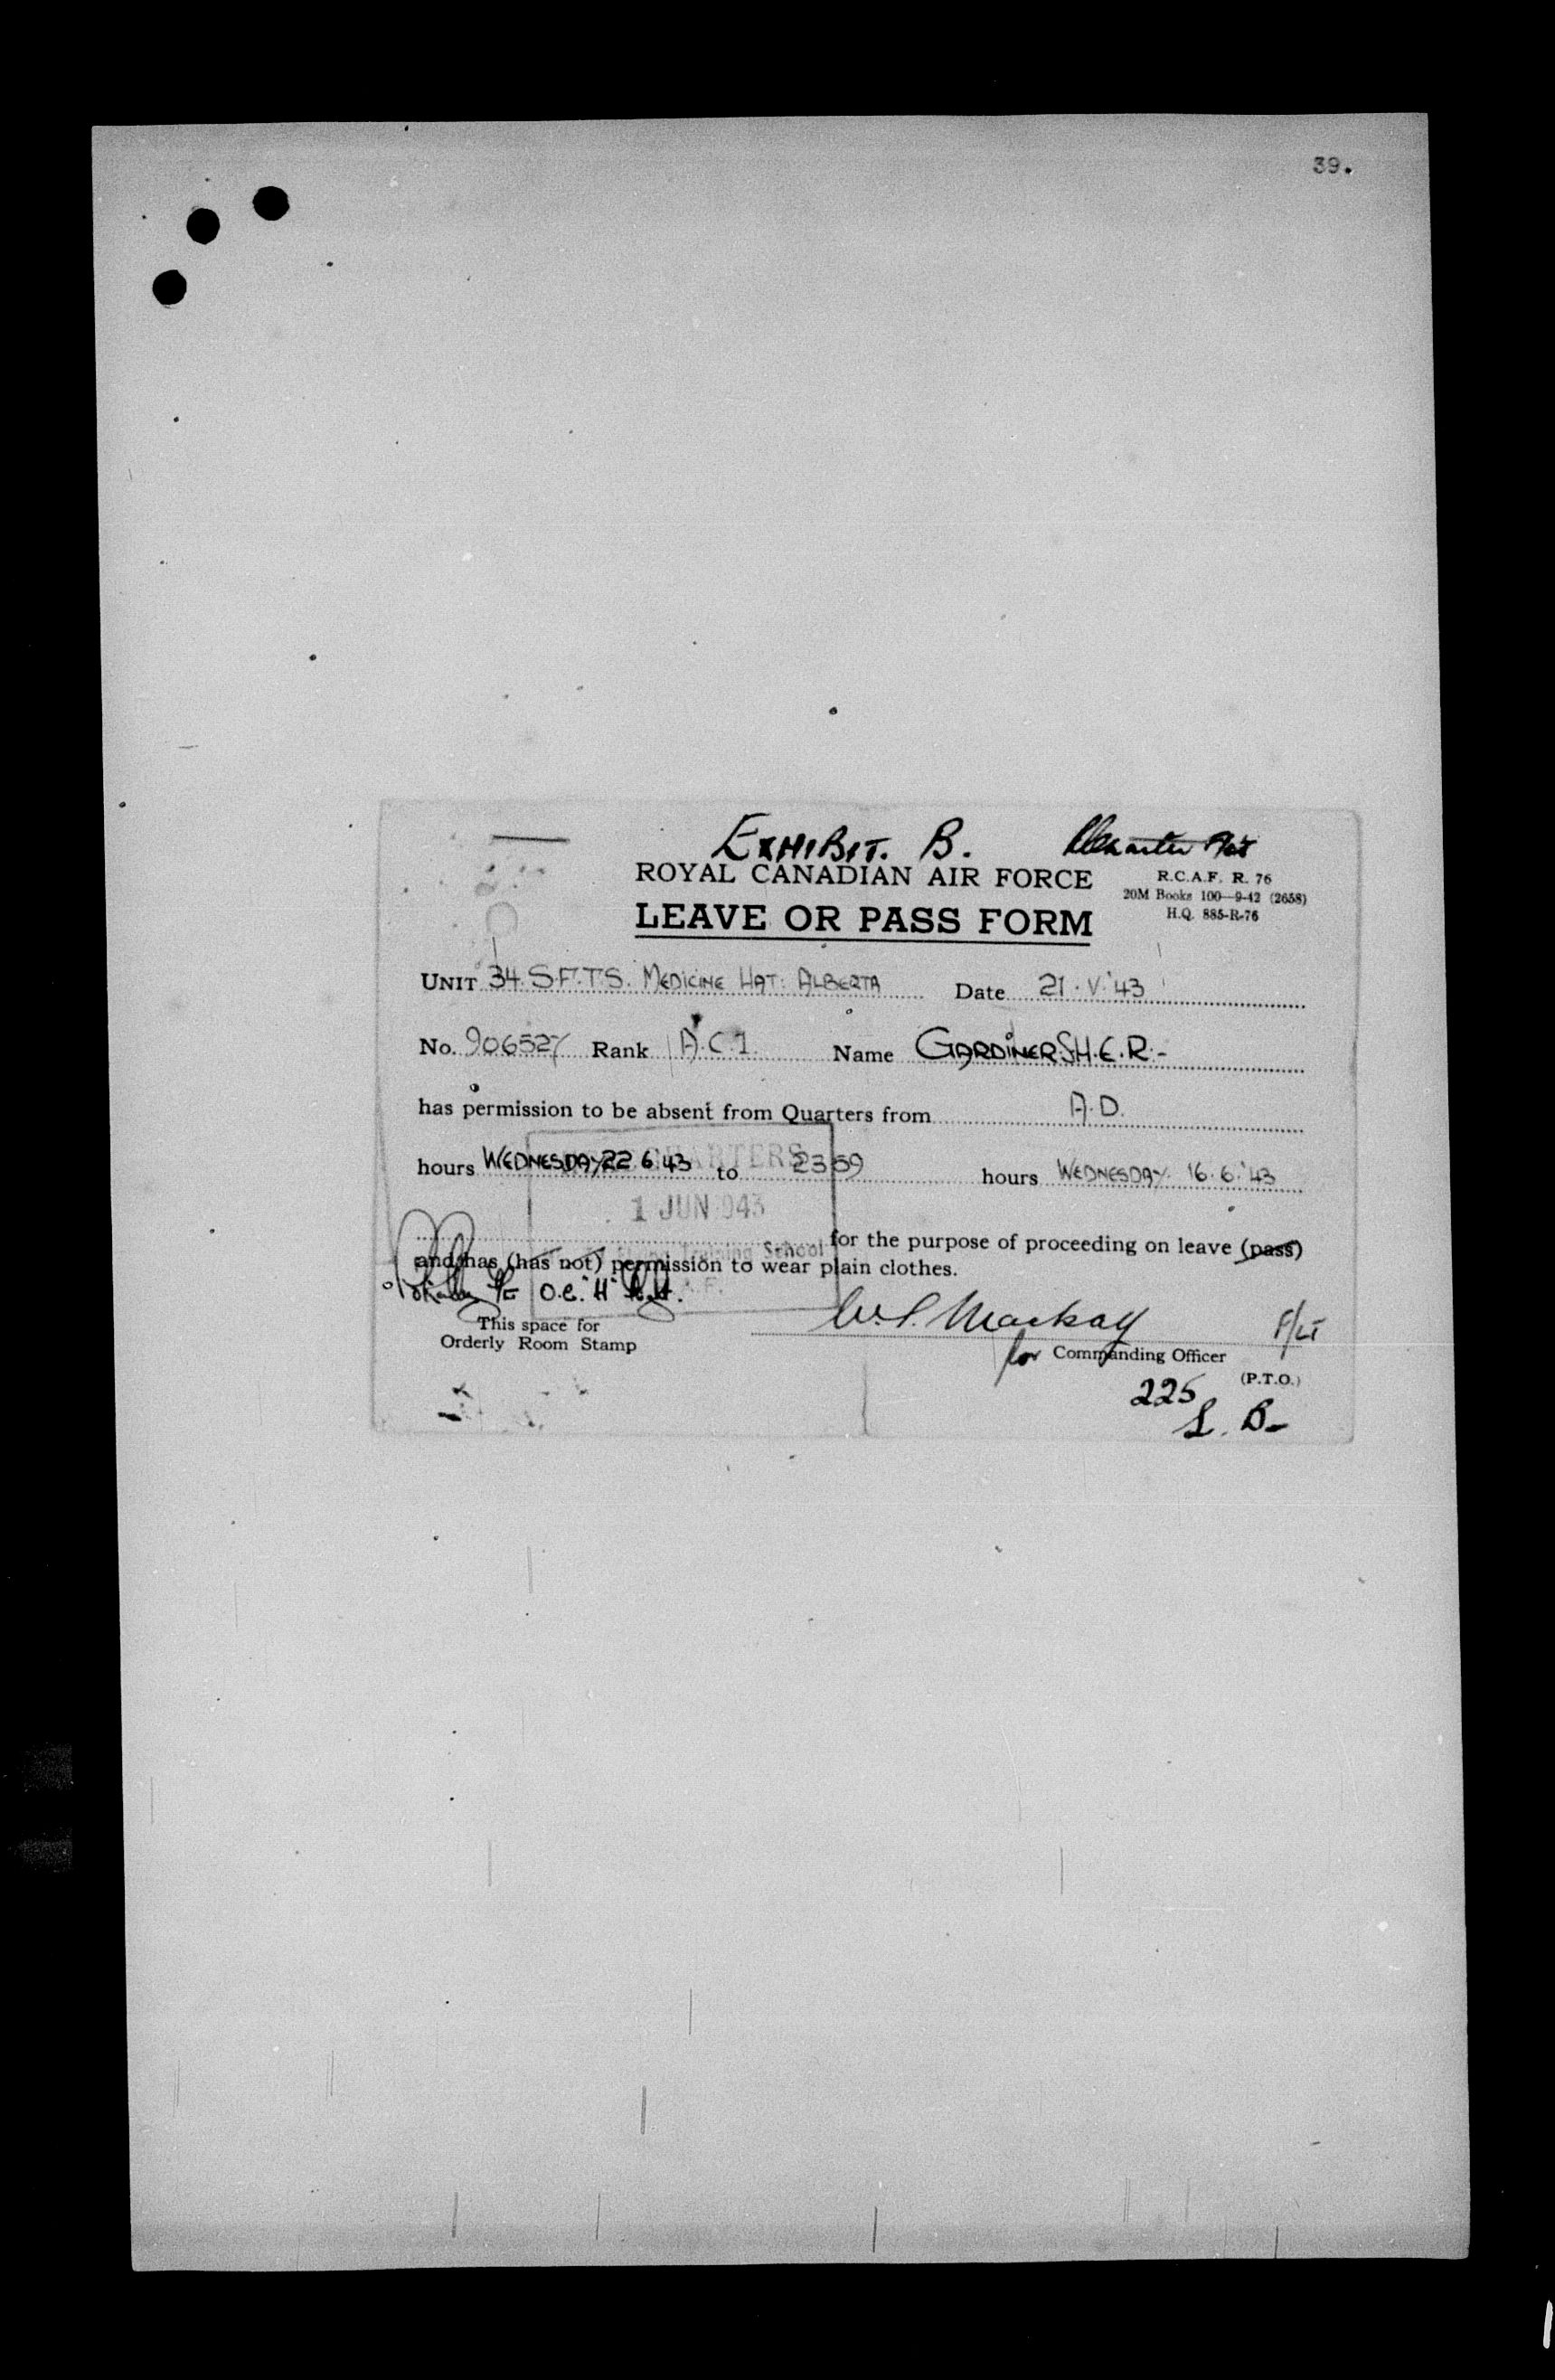 39.
EXHIBIT. B.
ROYAL CANADIAN AIR FORCE
R.C.A.F. R. 76
20M Books 100—9-42 (2658)
H.Q. 885-R-76
LEAVE OR PASS FORM
UNIT 34. S.F.T.S. MEDICINE HAT: ALBERTA Date 21 · V.'43
No. 906527 Rank A.C.1. Name GARDINER S.H.E.R.-
has permission to be absent from Quarters from A.D.
hours WEDNESDAY 22 6 43 to 2359 hours WEDNESDAY. 16.6.'43
1 JUN 943
for the purpose of proceeding on leave (pass)
Training School
and has (has not) permission to wear plain clothes.
O.C. "H"
W.S. Mackay F/LT
This space for
Orderly Room Stamp
for Commanding Officer
(P.T.O.)
225
L. B-